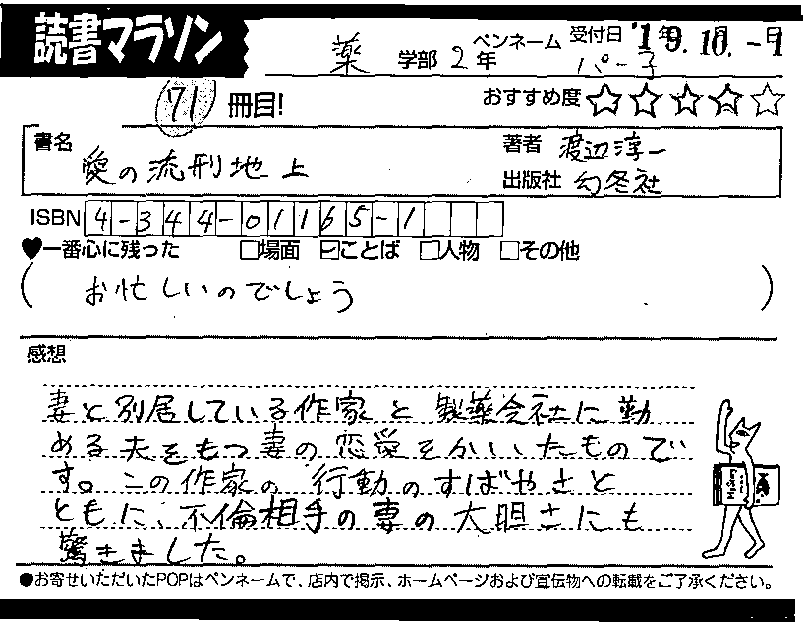 読書マラソン
薬 学部 2年 ペンネーム パー子 受付日 '19.10.-9
71 冊目! おすすめ度 ☆☆☆☆☆
書名 愛の流刑地 上
著者 渡辺淳一
出版社 幻冬社
ISBN 4-344-01165-1
♥一番心に残った □場面 ☑ことば □人物 □その他
( お忙しいのでしょう )
感想
妻と別居している作家と製薬会社に勤
める夫をもつ妻の恋愛をかいたもので
す。この作家の行動のすばやさと
ともに、不倫相手の妻の大胆さにも
驚きました。
●お寄せいただいたPOPはペンネームで、店内で掲示、ホームページおよび宣伝物への転載をご了承ください。